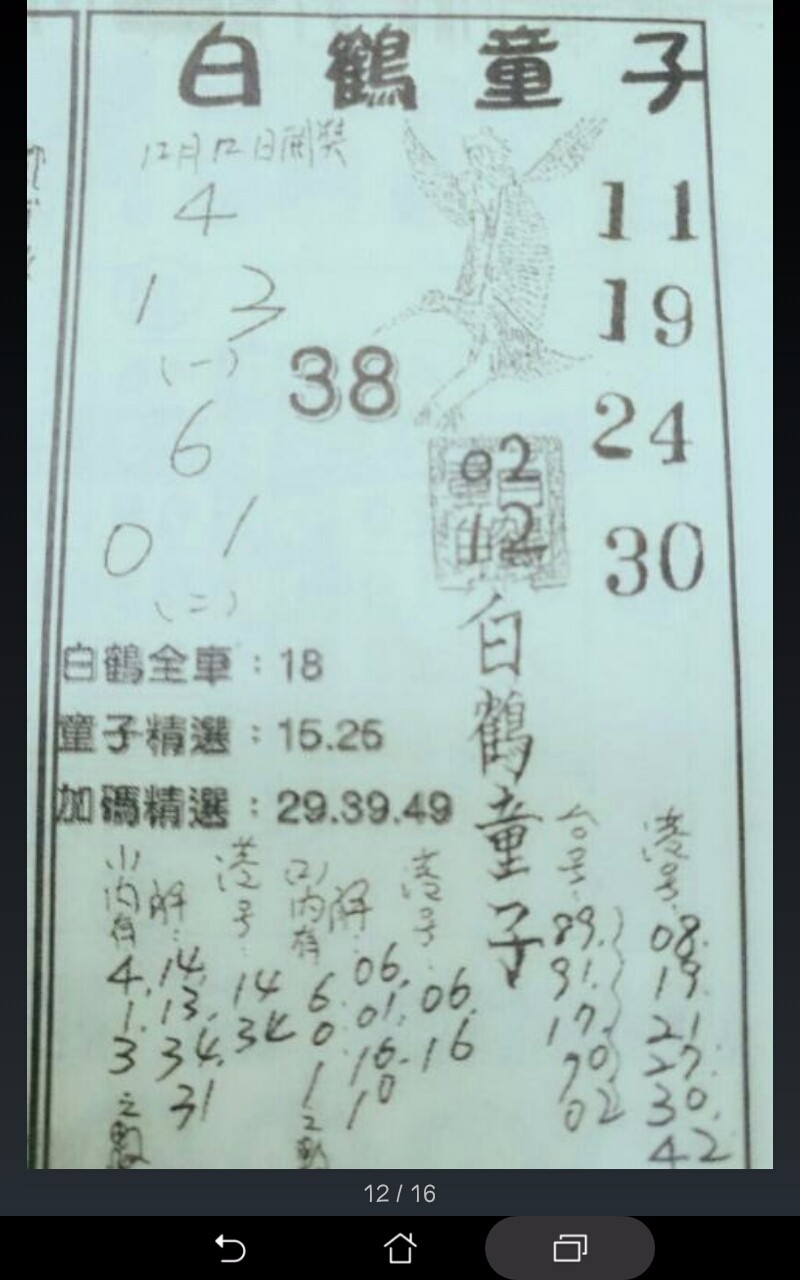 白鶴童子
12月12日開獎
4
1 3
(一)
6
0 1
(二)
38
11
19
24
30
02
12
白鶴童子
白鶴全車：18
童子精選：15.25
加碼精選：29.39.49
內有
4.
1.
3
之數
解：
14.
13.
34.
31
港号：
14
34
(2)內有
6
0
1
解
06.
01.
16.
10
港号：
06.
16
89.
91.
17.
70
02
港号：
08.
19.
21
27.
30.
42
12 / 16